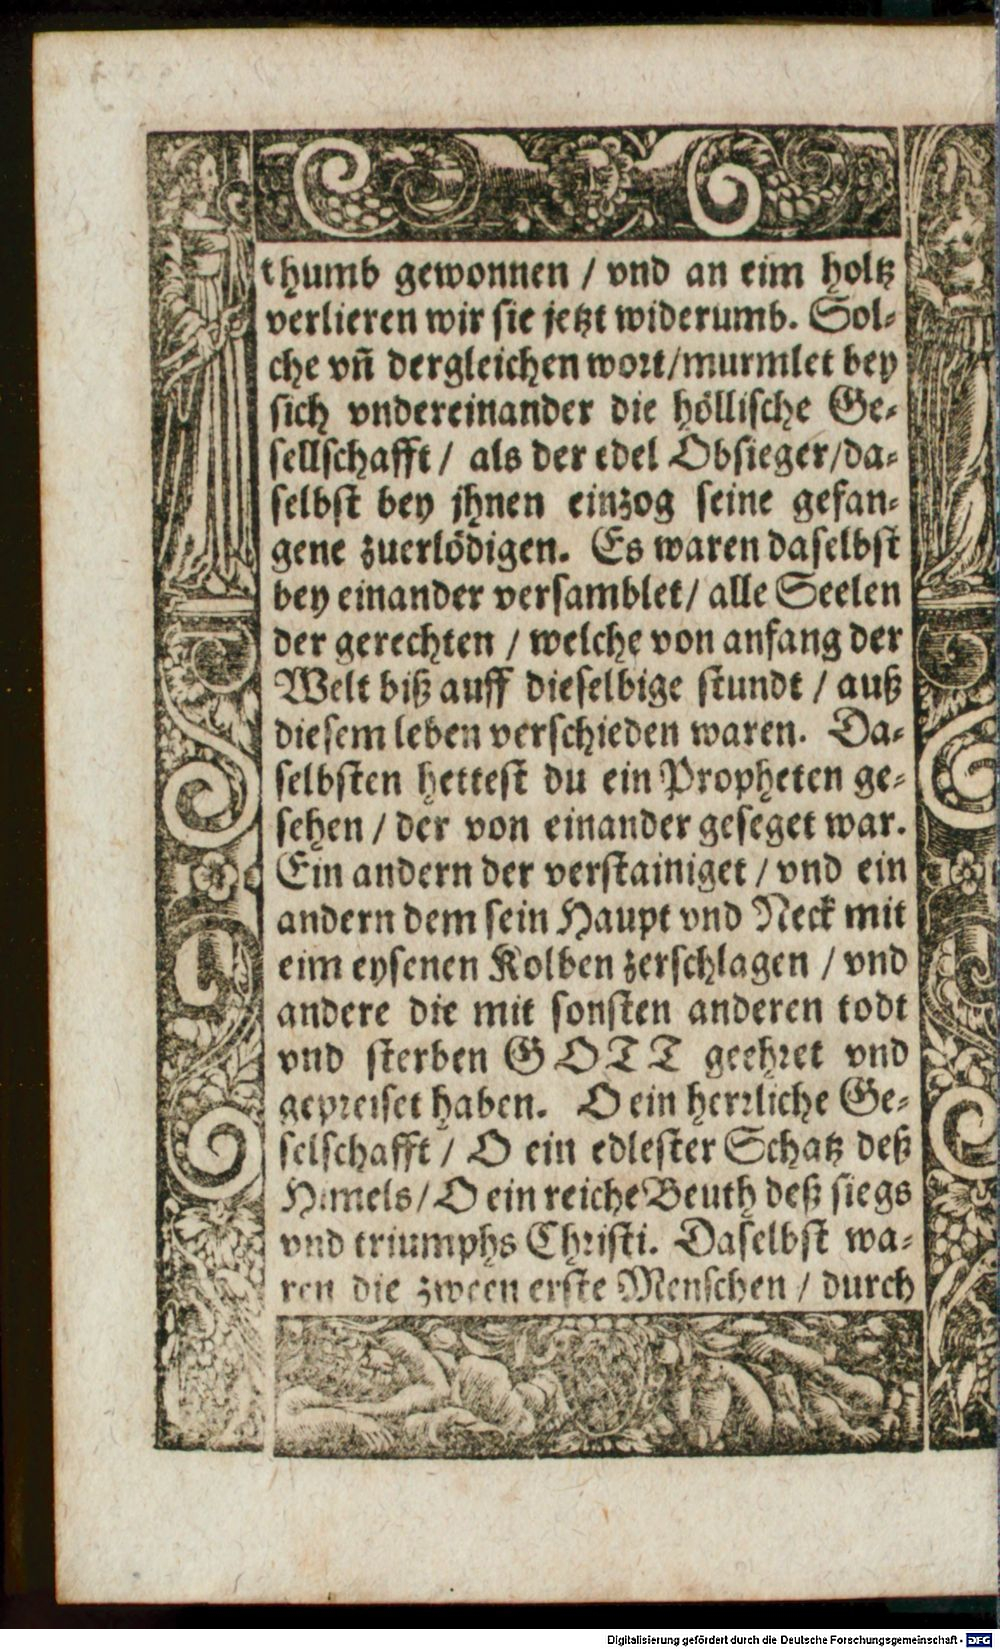 thumb gewonnen / vnd an eim holtz
verlieren wir sie jetzt widerumb. Sol-
che vñ dergleichen wort/murmlet bey
sich vndereinander die höllische Ge-
sellschafft / als der edel Obsieger/da-
selbst bey jhnen einzog seine gefan-
gene zuerlödigen. Es waren daselbst
bey einander versamblet/ alle Seelen
der gerechten / welche von anfang der
Welt biß auff dieselbige stundt / auß
diesem leben verschieden waren. Da-
selbsten hettest du ein Propheten ge-
sehen / der von einander geseget war.
Ein andern der verstainiget / vnd ein
andern dem sein Haupt vnd Neck mit
eim eysenen Kolben zerschlagen / vnd
andere die mit sonsten anderen todt
vnd sterben GOTT geehret vnd
gepreiset haben. O ein herrliche Ge-
selschafft / O ein edlester Schatz deß
Himels/ O ein reiche Beuth deß siegs
vnd triumphs Christi. Daselbst wa-
ren die zween erste Menschen / durch
Digitalisierung gefördert durch die Deutsche Forschungsgemeinschaft - DFG